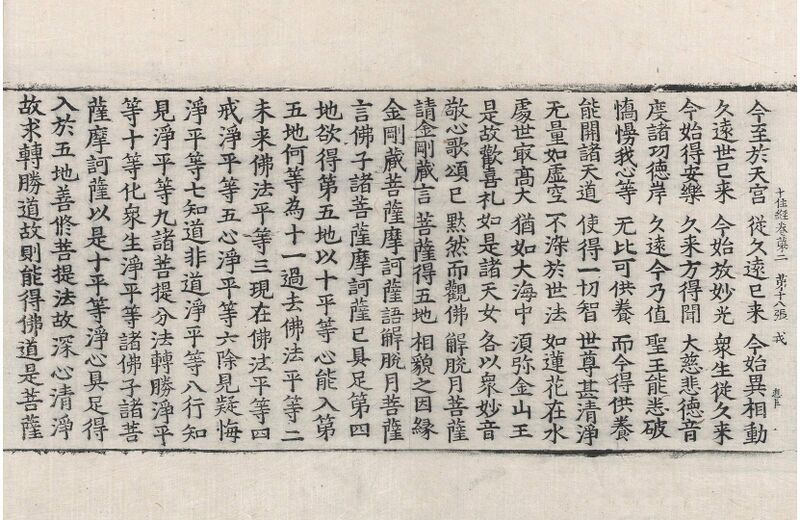 今至於天宮 從久遠已來 今始異相動
久遠世已來 今始放妙光 衆生從久來
今始得安樂 久來方得聞 大慈悲德音
度諸功德岸 久遠今乃值 聖王能悉破
憍慢我心等 无比可供養 而今得供養
能開諸天道 使得一切智 世尊甚清淨
无量如虛空 不染於世法 如蓮花在水
處世㝡高大 猶如大海中 須弥金山王
是故歡喜礼 如是諸天女 各以衆妙音
敬心歌頌已 默然而觀佛 解脫月菩薩
請金剛藏言 菩薩得五地 相貌之因緣
金剛藏菩薩摩訶薩語解脫月菩薩
言佛子諸菩薩摩訶薩已具足第四
地欲得第五地以十平等心能入第
五地何等為十一過去佛法平等二
未来佛法平等三現在佛法平等四
戒淨平等五心淨平等六除見疑悔
淨平等七知道非道淨平等八行知
見淨平等九諸菩提分法轉勝淨平
等十等化衆生淨平等諸佛子諸菩
薩摩訶薩以是十平等淨心具足得
入於五地善修菩提法故深心清淨
故求轉勝道故則能得佛道是菩薩
十住經卷第二 第十八張 戎